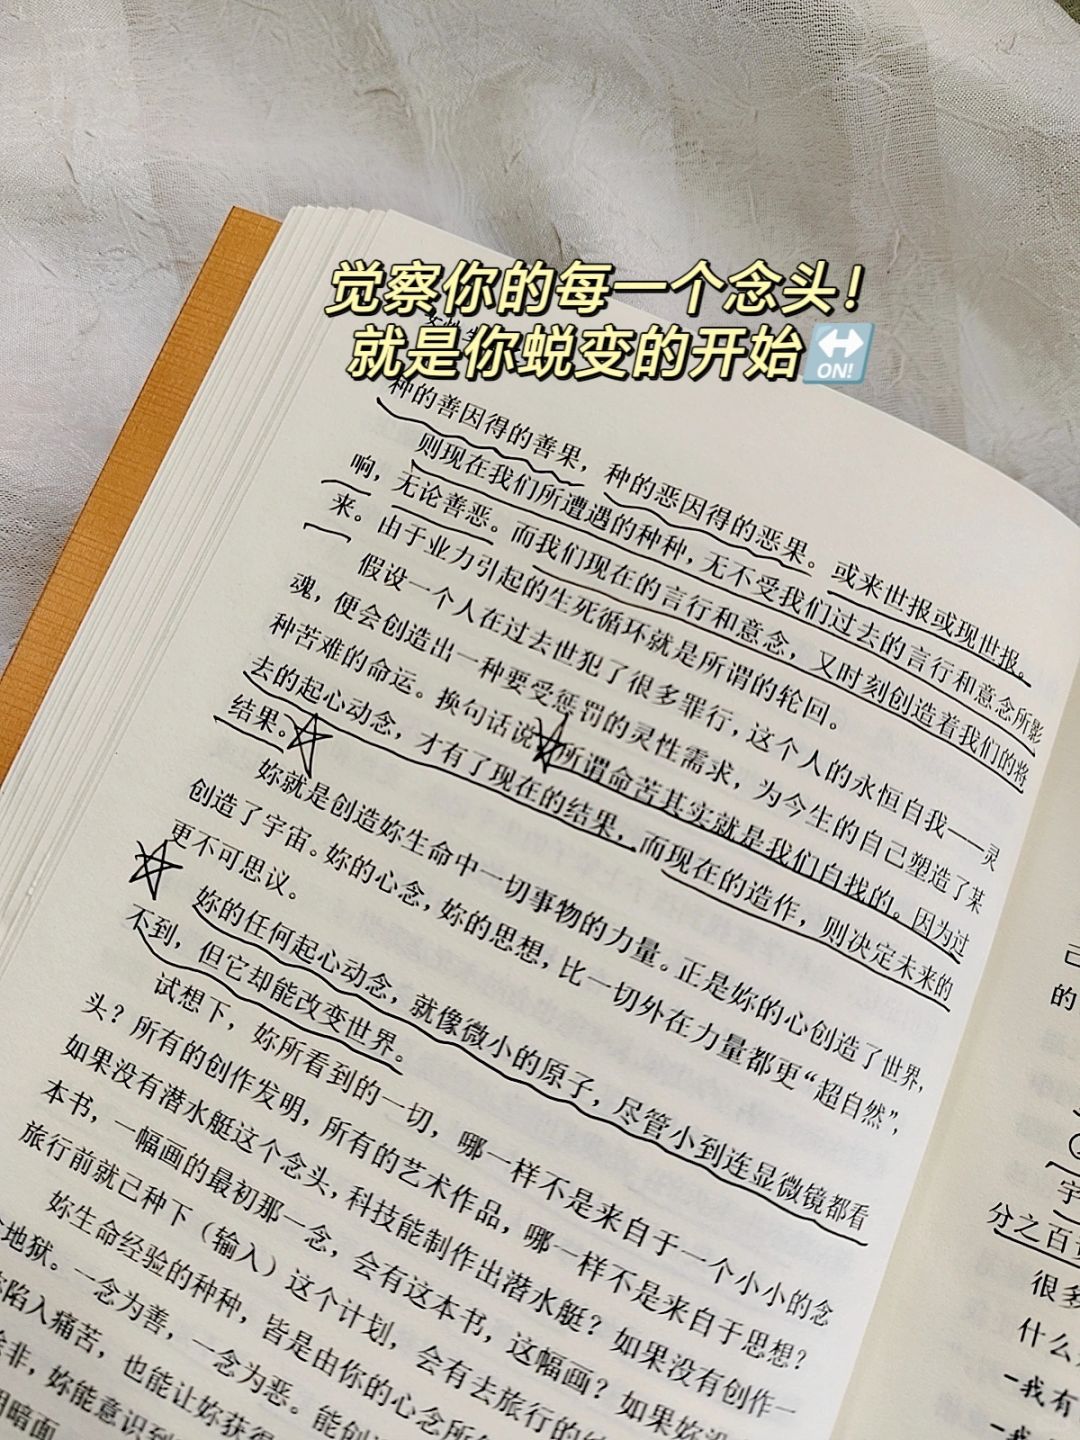 觉察你的每一个念头！
就是你蜕变的开始
ON!
种的善因得的善果，种的恶因得的恶果。或来世报或现世报。
则现在我们所遭遇的种种，无不受我们过去的言行和意念所影
响，无论善恶。而我们现在的言行和意念，又时刻创造着我们的将
来。由于业力引起的生死循环就是所谓的轮回。
假设一个人在过去世犯了很多罪行，这个人的永恒自我——灵
魂，便会创造出一种要受惩罚的灵性需求，为今生的自己塑造了某
种苦难的命运。换句话说，所谓命苦其实就是我们自找的。因为过
去的起心动念，才有了现在的结果，而现在的造作，则决定未来的
结果。
妳就是创造妳生命中一切事物的力量。正是妳的心创造了世界，
创造了宇宙。妳的心念，妳的思想，比一切外在力量都更“超自然”，
更不可思议。
妳的任何起心动念，就像微小的原子，尽管小到连显微镜都看
不到，但它却能改变世界。
试想下，妳所看到的一切，哪一样不是来自于一个小小的念
头？所有的创作发明，所有的艺术作品，哪一样不是来自于思想？
如果没有潜水艇这个念头，科技能制作出潜水艇？如果没有创作一
本书，一幅画的最初那一念，会有这本书，这幅画？如果妳没
旅行前就已种下（输入）这个计划，会有去旅行的
妳生命经验的种种，皆是由你的心念所
地狱。一念为善，一念为恶。能创
陷入痛苦，也能让妳获得
非，妳能意识到
阴暗面
己
的
宇
分之百
很多
什么
-我有
-我